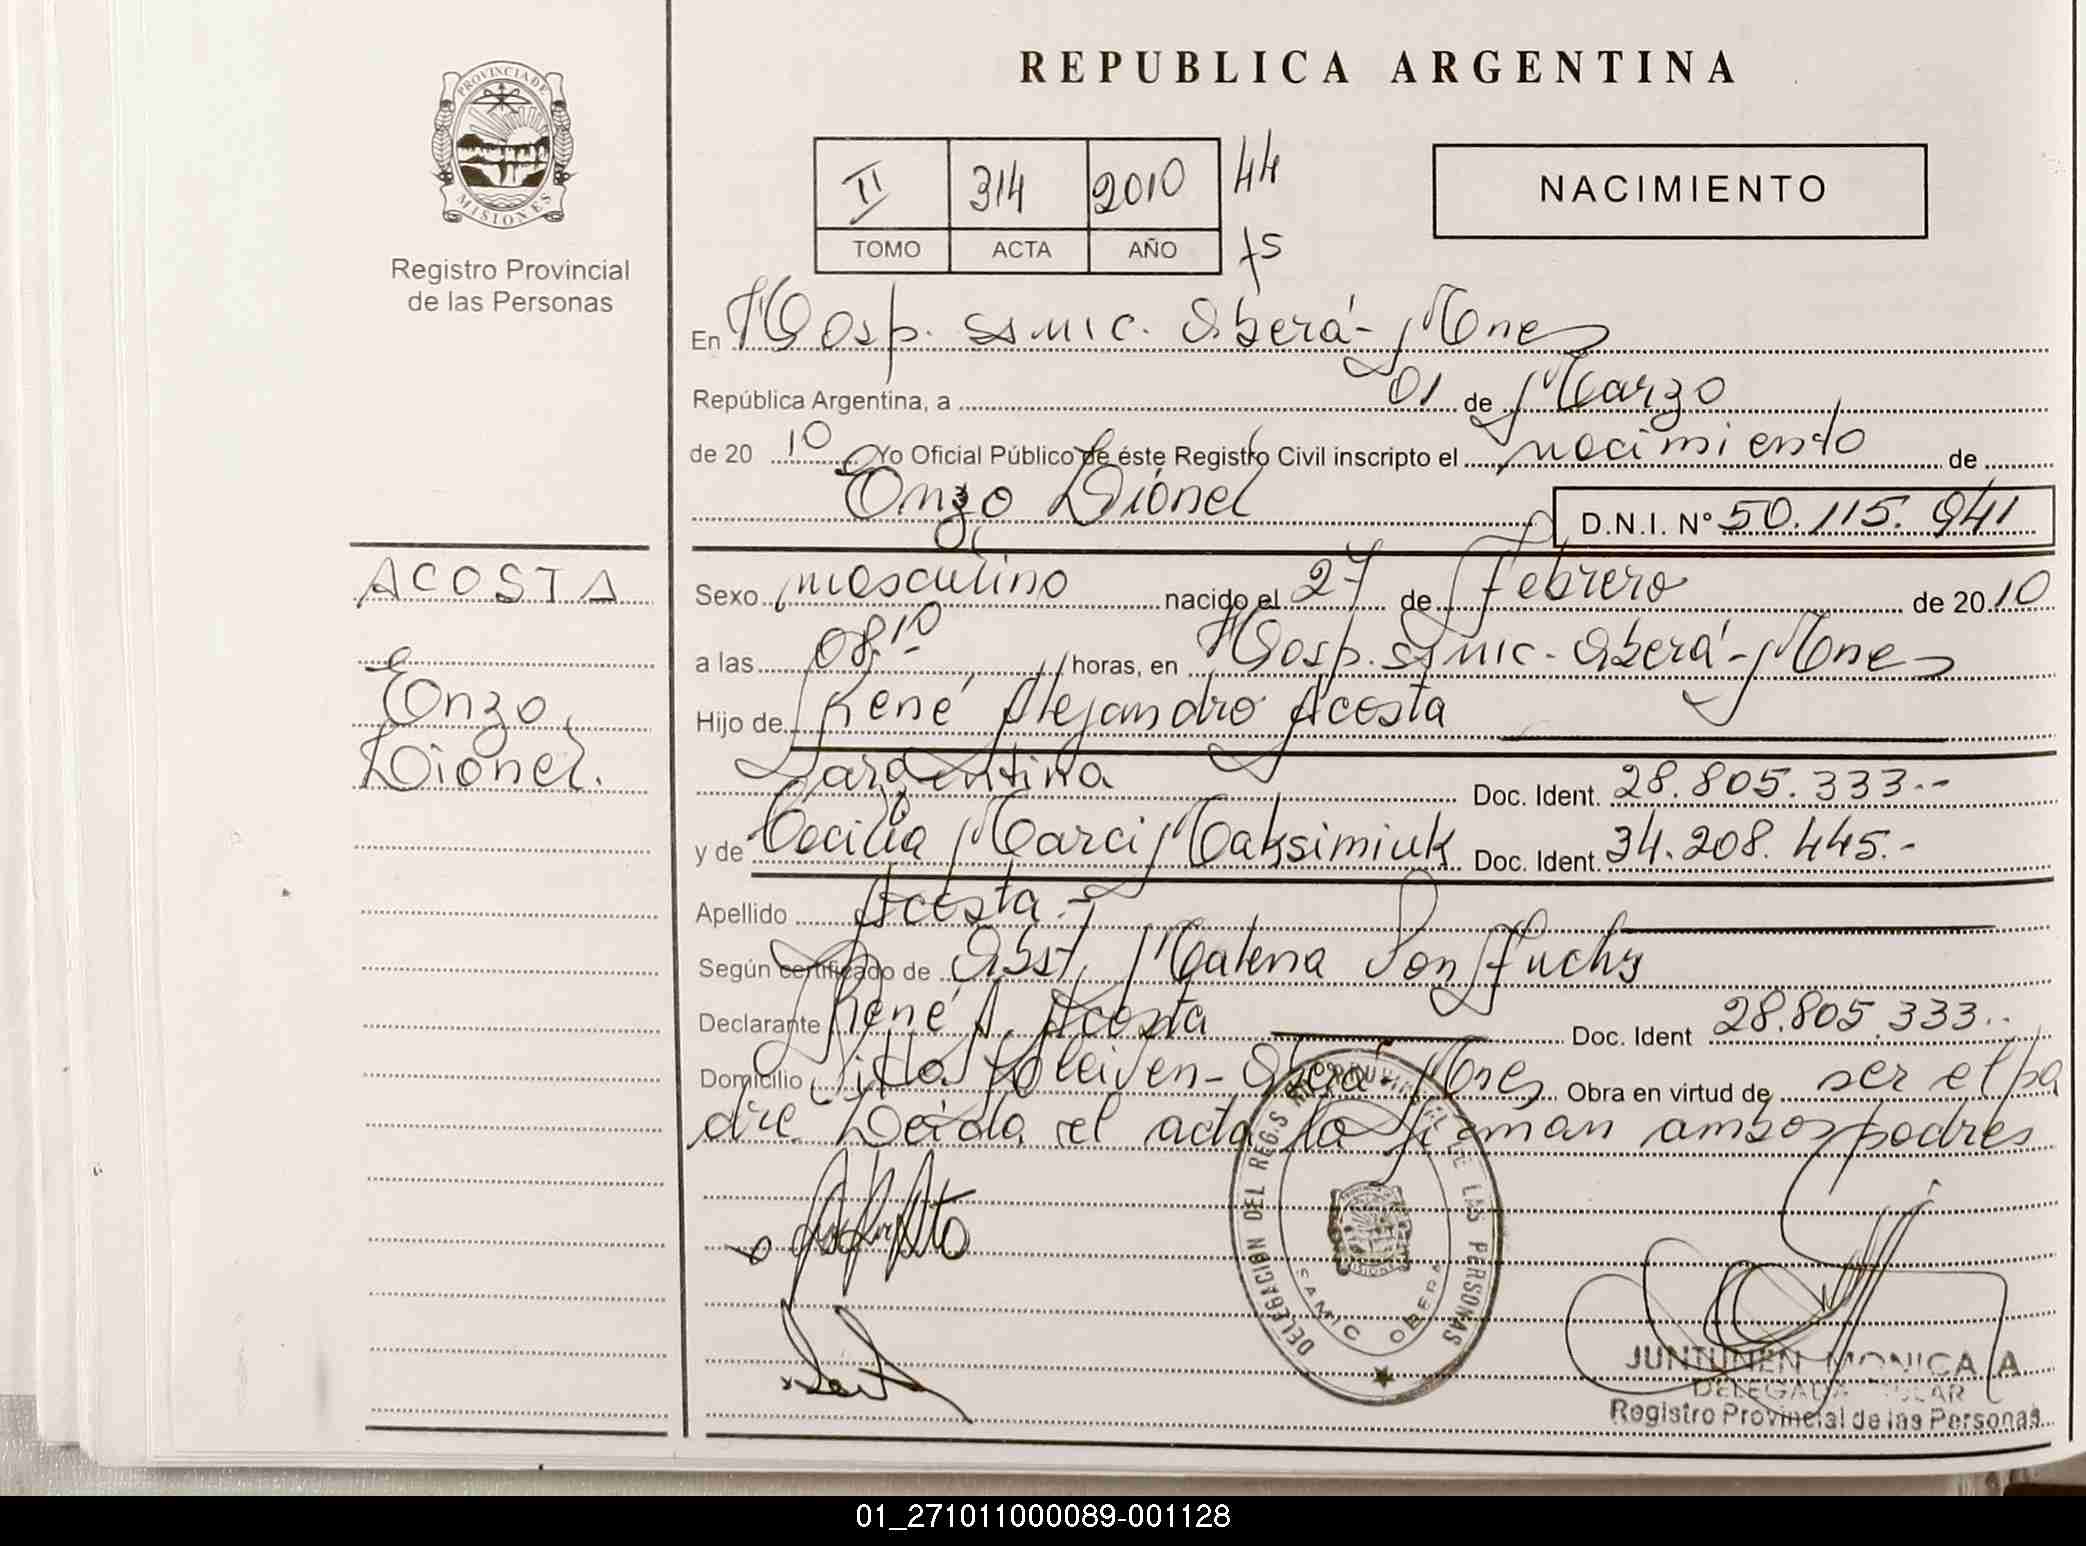 PROVINCIA DE
MISIONES
Registro Provincial
de las Personas
REPUBLICA ARGENTINA
II 314 2010 44
TOMO ACTA AÑO 75
NACIMIENTO
En Hosp. SAMIC. Oberá - Mnes
República Argentina, a 01 de Marzo
de 2010 Yo Oficial Público de éste Registro Civil inscripto el nacimiento de
Enzo Lionel D.N.I. Nº 50.115.941
ACOSTA
Enzo
Lionel.
Sexo masculino nacido el 27 de Febrero de 2010
a las 08:10 horas, en Hosp. SAMIC - Oberá - Mnes
Hijo de René Alejandro Acosta
argentina Doc. Ident. 28.805.333.-
y de Cecilia Marci Maksimiuk Doc. Ident. 34.208.445.-
Apellido Acosta.-
Según certificado de Obst. Malena Von Fuchs
Declarante René A. Acosta Doc. Ident 28.805.333.-
Domicilio Oberá - Mnes Obra en virtud de ser el pa
dre. Leida el acta la firman ambos padres
DELEGACION DEL REG.S PROVINCIAL DE LAS PERSONAS
SAMIC OBERA
MISIONES
JUNTUNEN MONICA A
DELEGADA TITULAR
Registro Provincial de las Personas
01_271011000089-001128